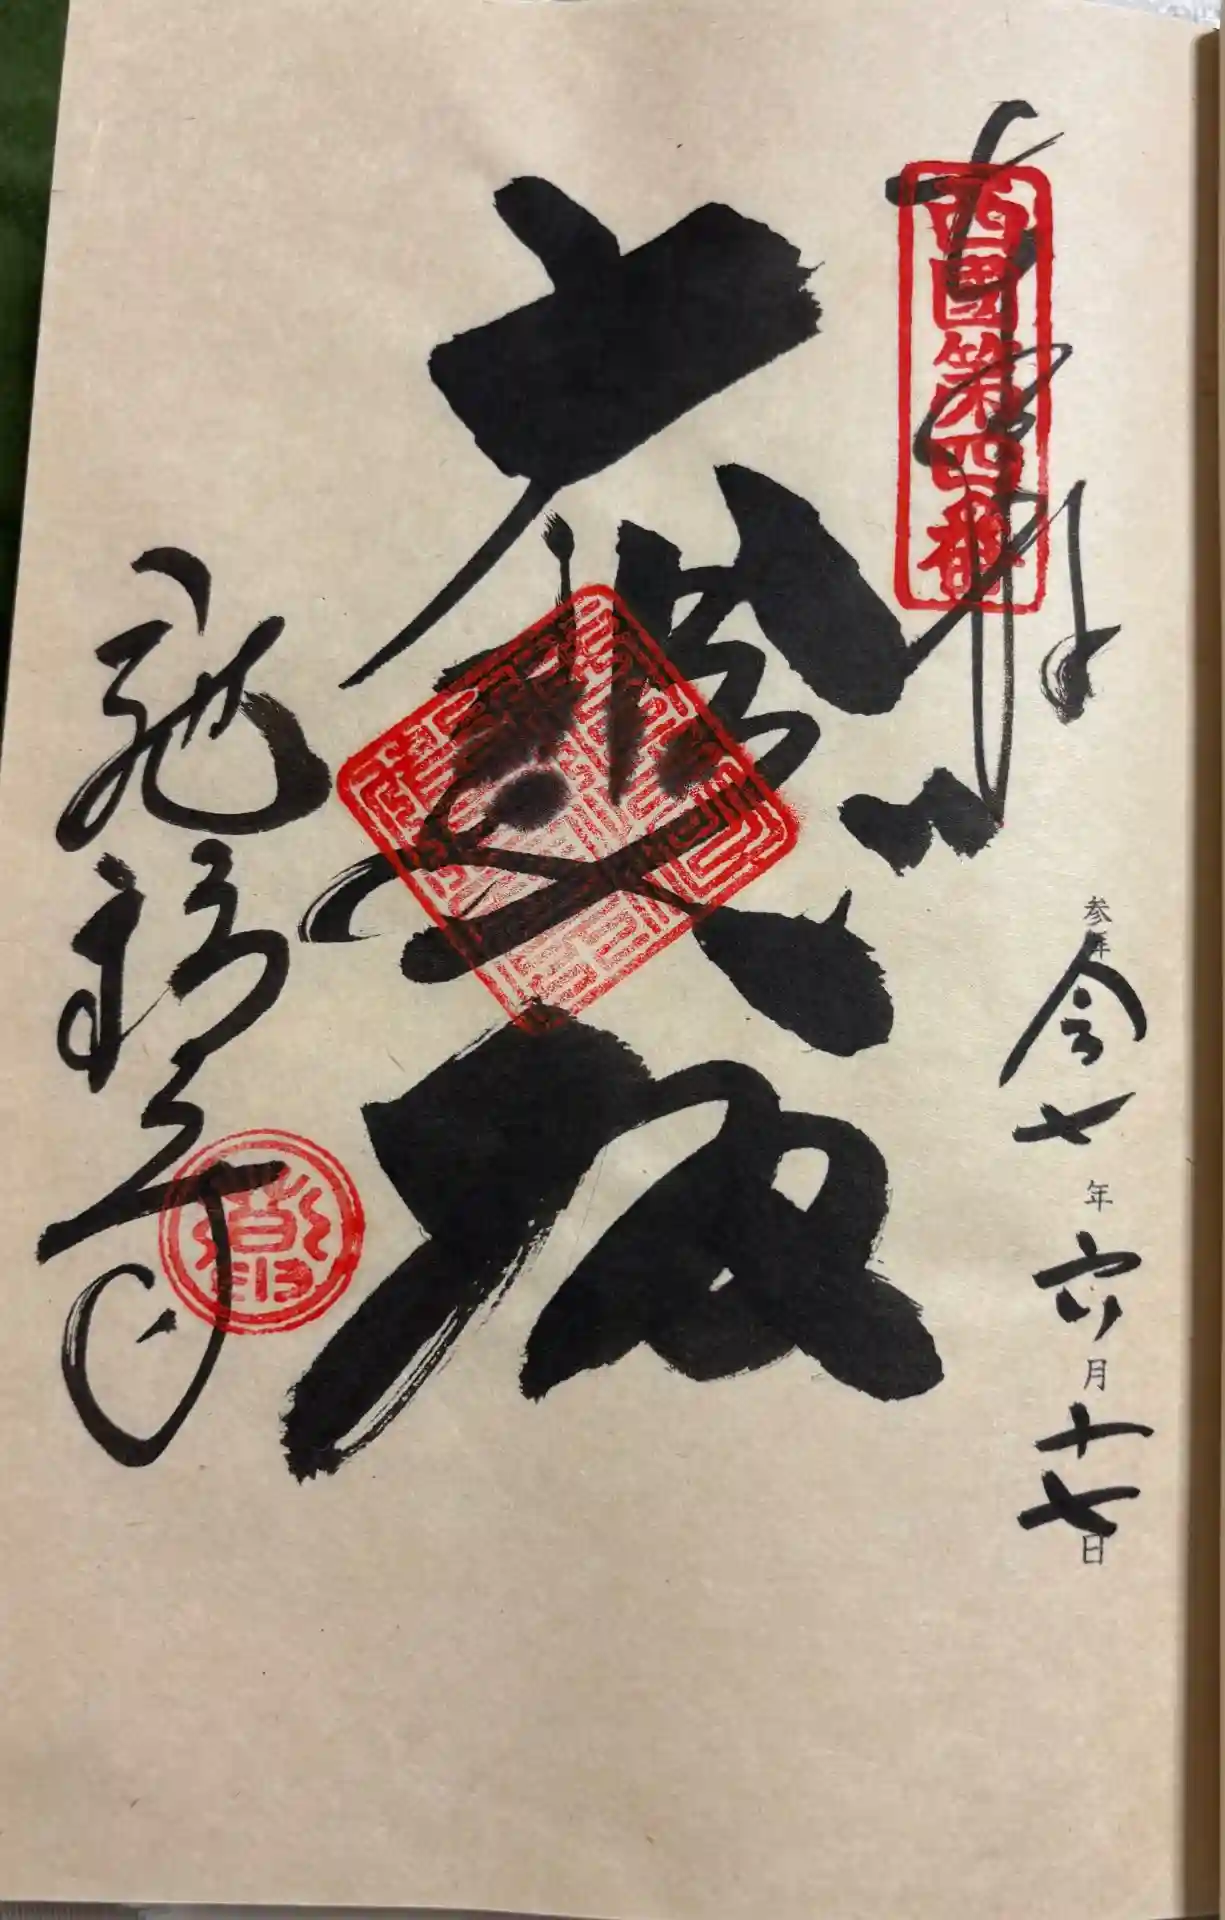 奉拝
西國第四番
参拝
令七年六月十七日
大悲殿
施福寺